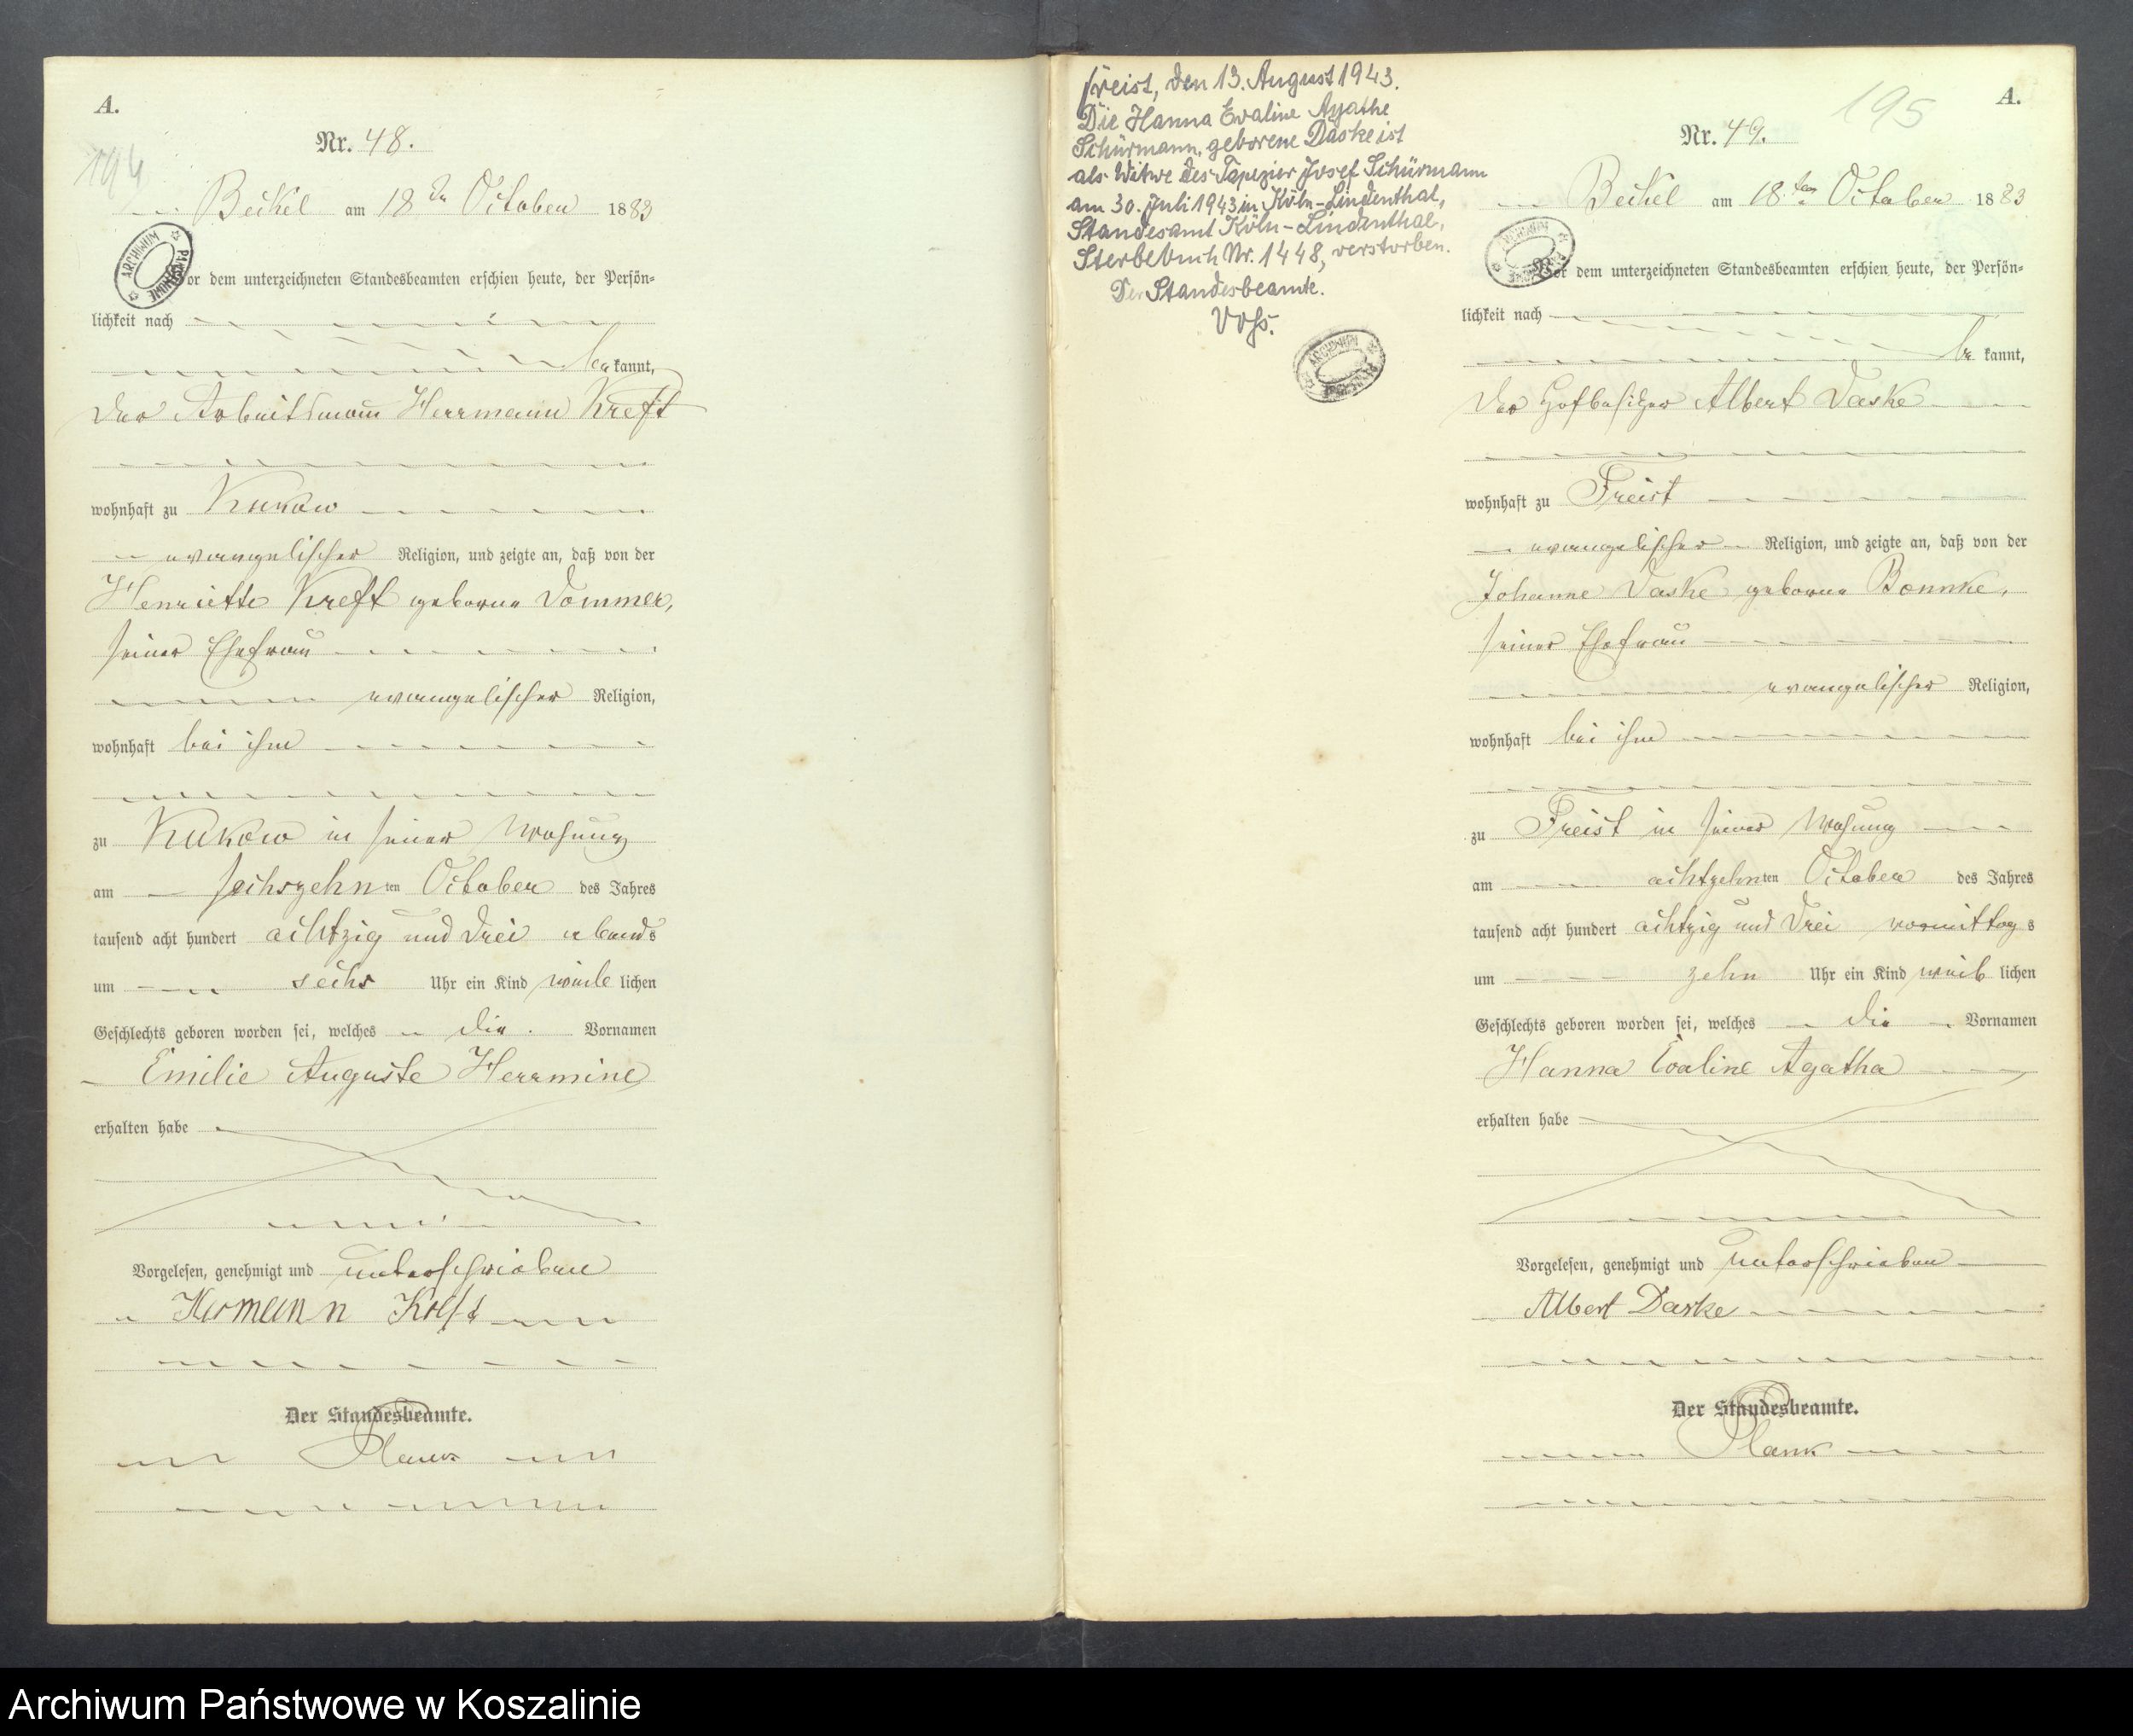 A.
194
Nr. 48.
Beckel am 18ten October 1883
Vor dem unterzeichneten Standesbeamten erschien heute, der Persön-
lichkeit nach
be kannt,
der Arbeitsmann Herrmann Kreft
wohnhaft zu Kukow
evangelischer Religion, und zeigte an, daß von der
Henriette Kreft geborne Dommer,
seiner Ehefrau
evangelischer Religion,
wohnhaft bei ihm
zu Kukow in seiner Wohnung
am sechszehnten October des Jahres
tausend acht hundert achtzig und drei abends
um sechs Uhr ein Kind weiblichen
Geschlechts geboren worden sei, welches die Vornamen
Emilie Auguste Herrmine
erhalten habe
Vorgelesen, genehmigt und unterschrieben
Hermann Kreft
Der Standesbeamte.
Plank
Freist, den 13. August 1943.
Die Hanna Evaline Agathe
Schürmann, geborene Daske ist
als Witwe des Tapezier Josef Schürmann
am 30. Juli 1943 in Köln-Lindenthal,
Standesamt Köln-Lindenthal,
Sterbebuch Nr. 1448, verstorben.
Der Standesbeamte.
Voß.
195
A.
Nr. 49.
Beckel am 18.ten October 1883
Vor dem unterzeichneten Standesbeamten erschien heute, der Persön-
lichkeit nach
be kannt,
der Hofbesitzer Albert Daske
wohnhaft zu Freist
evangelischer Religion, und zeigte an, daß von der
Johanne Daske geborne Bonnke,
seiner Ehefrau
evangelischer Religion,
wohnhaft bei ihm
zu Freist in seiner Wohnung
am achtzehnten October des Jahres
tausend acht hundert achtzig und drei vormittags
um zehn Uhr ein Kind weiblichen
Geschlechts geboren worden sei, welches die Vornamen
Hanna Evaline Agatha
erhalten habe
Vorgelesen, genehmigt und unterschrieben
Albert Daske
Der Standesbeamte.
Plank
Archiwum Państwowe w Koszalinie